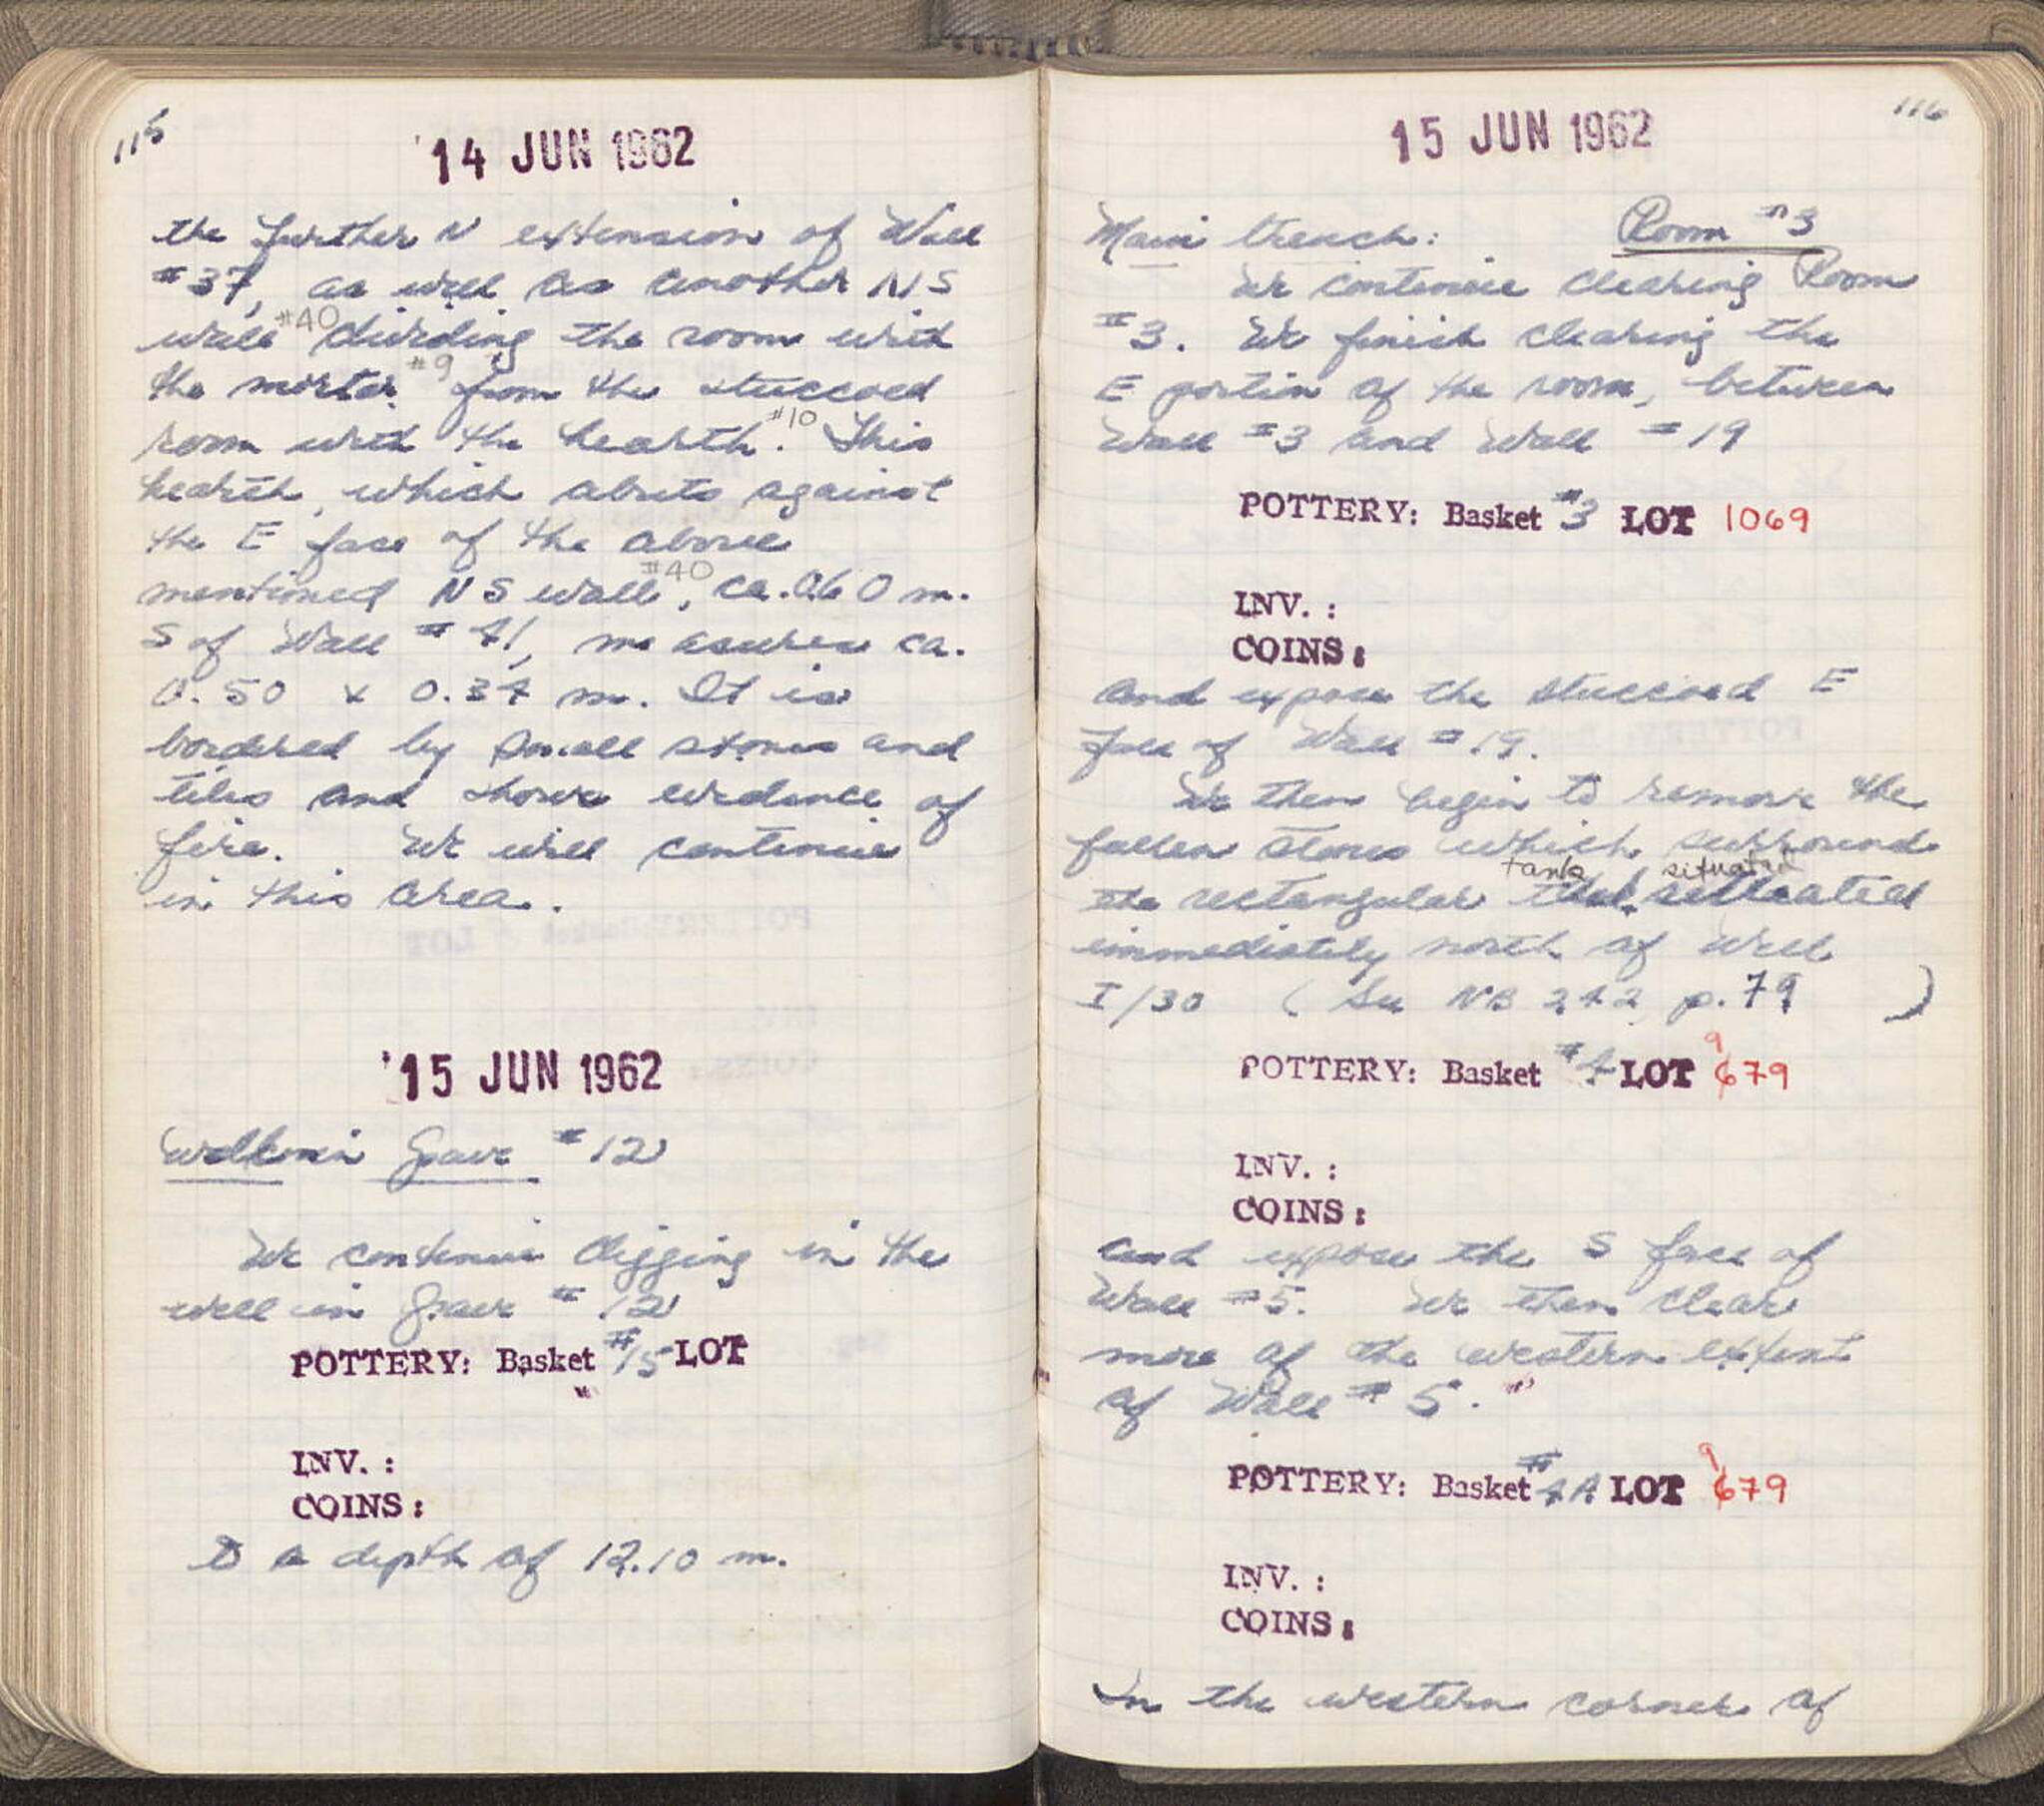 115
14 JUN 1962
the further N extension of Wall
#37, as well as another NS
wall #40 dividing the room with
the mortar #9 from the stuccoed
room with the hearth #10. This
hearth, which abuts against
the E face of the above
mentioned NS wall #40, ca. 0.60 m.
S of Wall #41, measures ca.
0.50 x 0.34 m. It is
bordered by small stones and
tiles and shows evidence of
fire. We will continue
in this area.
15 JUN 1962
Well in Grave #12
We continue digging in the
well in Grave #12
POTTERY: Basket #15 LOT
INV. :
COINS:
to a depth of 12.10 m.
116
15 JUN 1962
Main trench: Room #3
We continue clearing Room
#3. We finish clearing the
E portion of the room, between
Wall #3 and Wall #19
POTTERY: Basket #3 LOT 1069
INV. :
COINS:
and expose the stuccoed E
face of Wall #19.
We then begin to remove the
fallen stones which surround
tank situated
the rectangular situated
immediately north of Well
I/30 (See NB 242 p. 79 )
POTTERY: Basket #4 LOT 679
9
INV. :
COINS:
and expose the S face of
Wall #5. We then clear
more of the western extent
of Wall #5.
POTTERY: Basket #4A LOT 679
9
INV. :
COINS:
In the western corner of